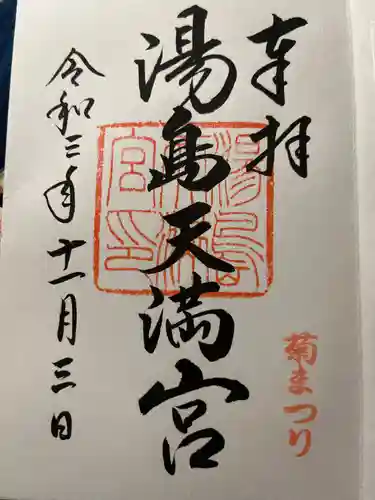 奉拝
菊まつり
湯島天満宮
湯島天満宮印
令和三年十一月三日